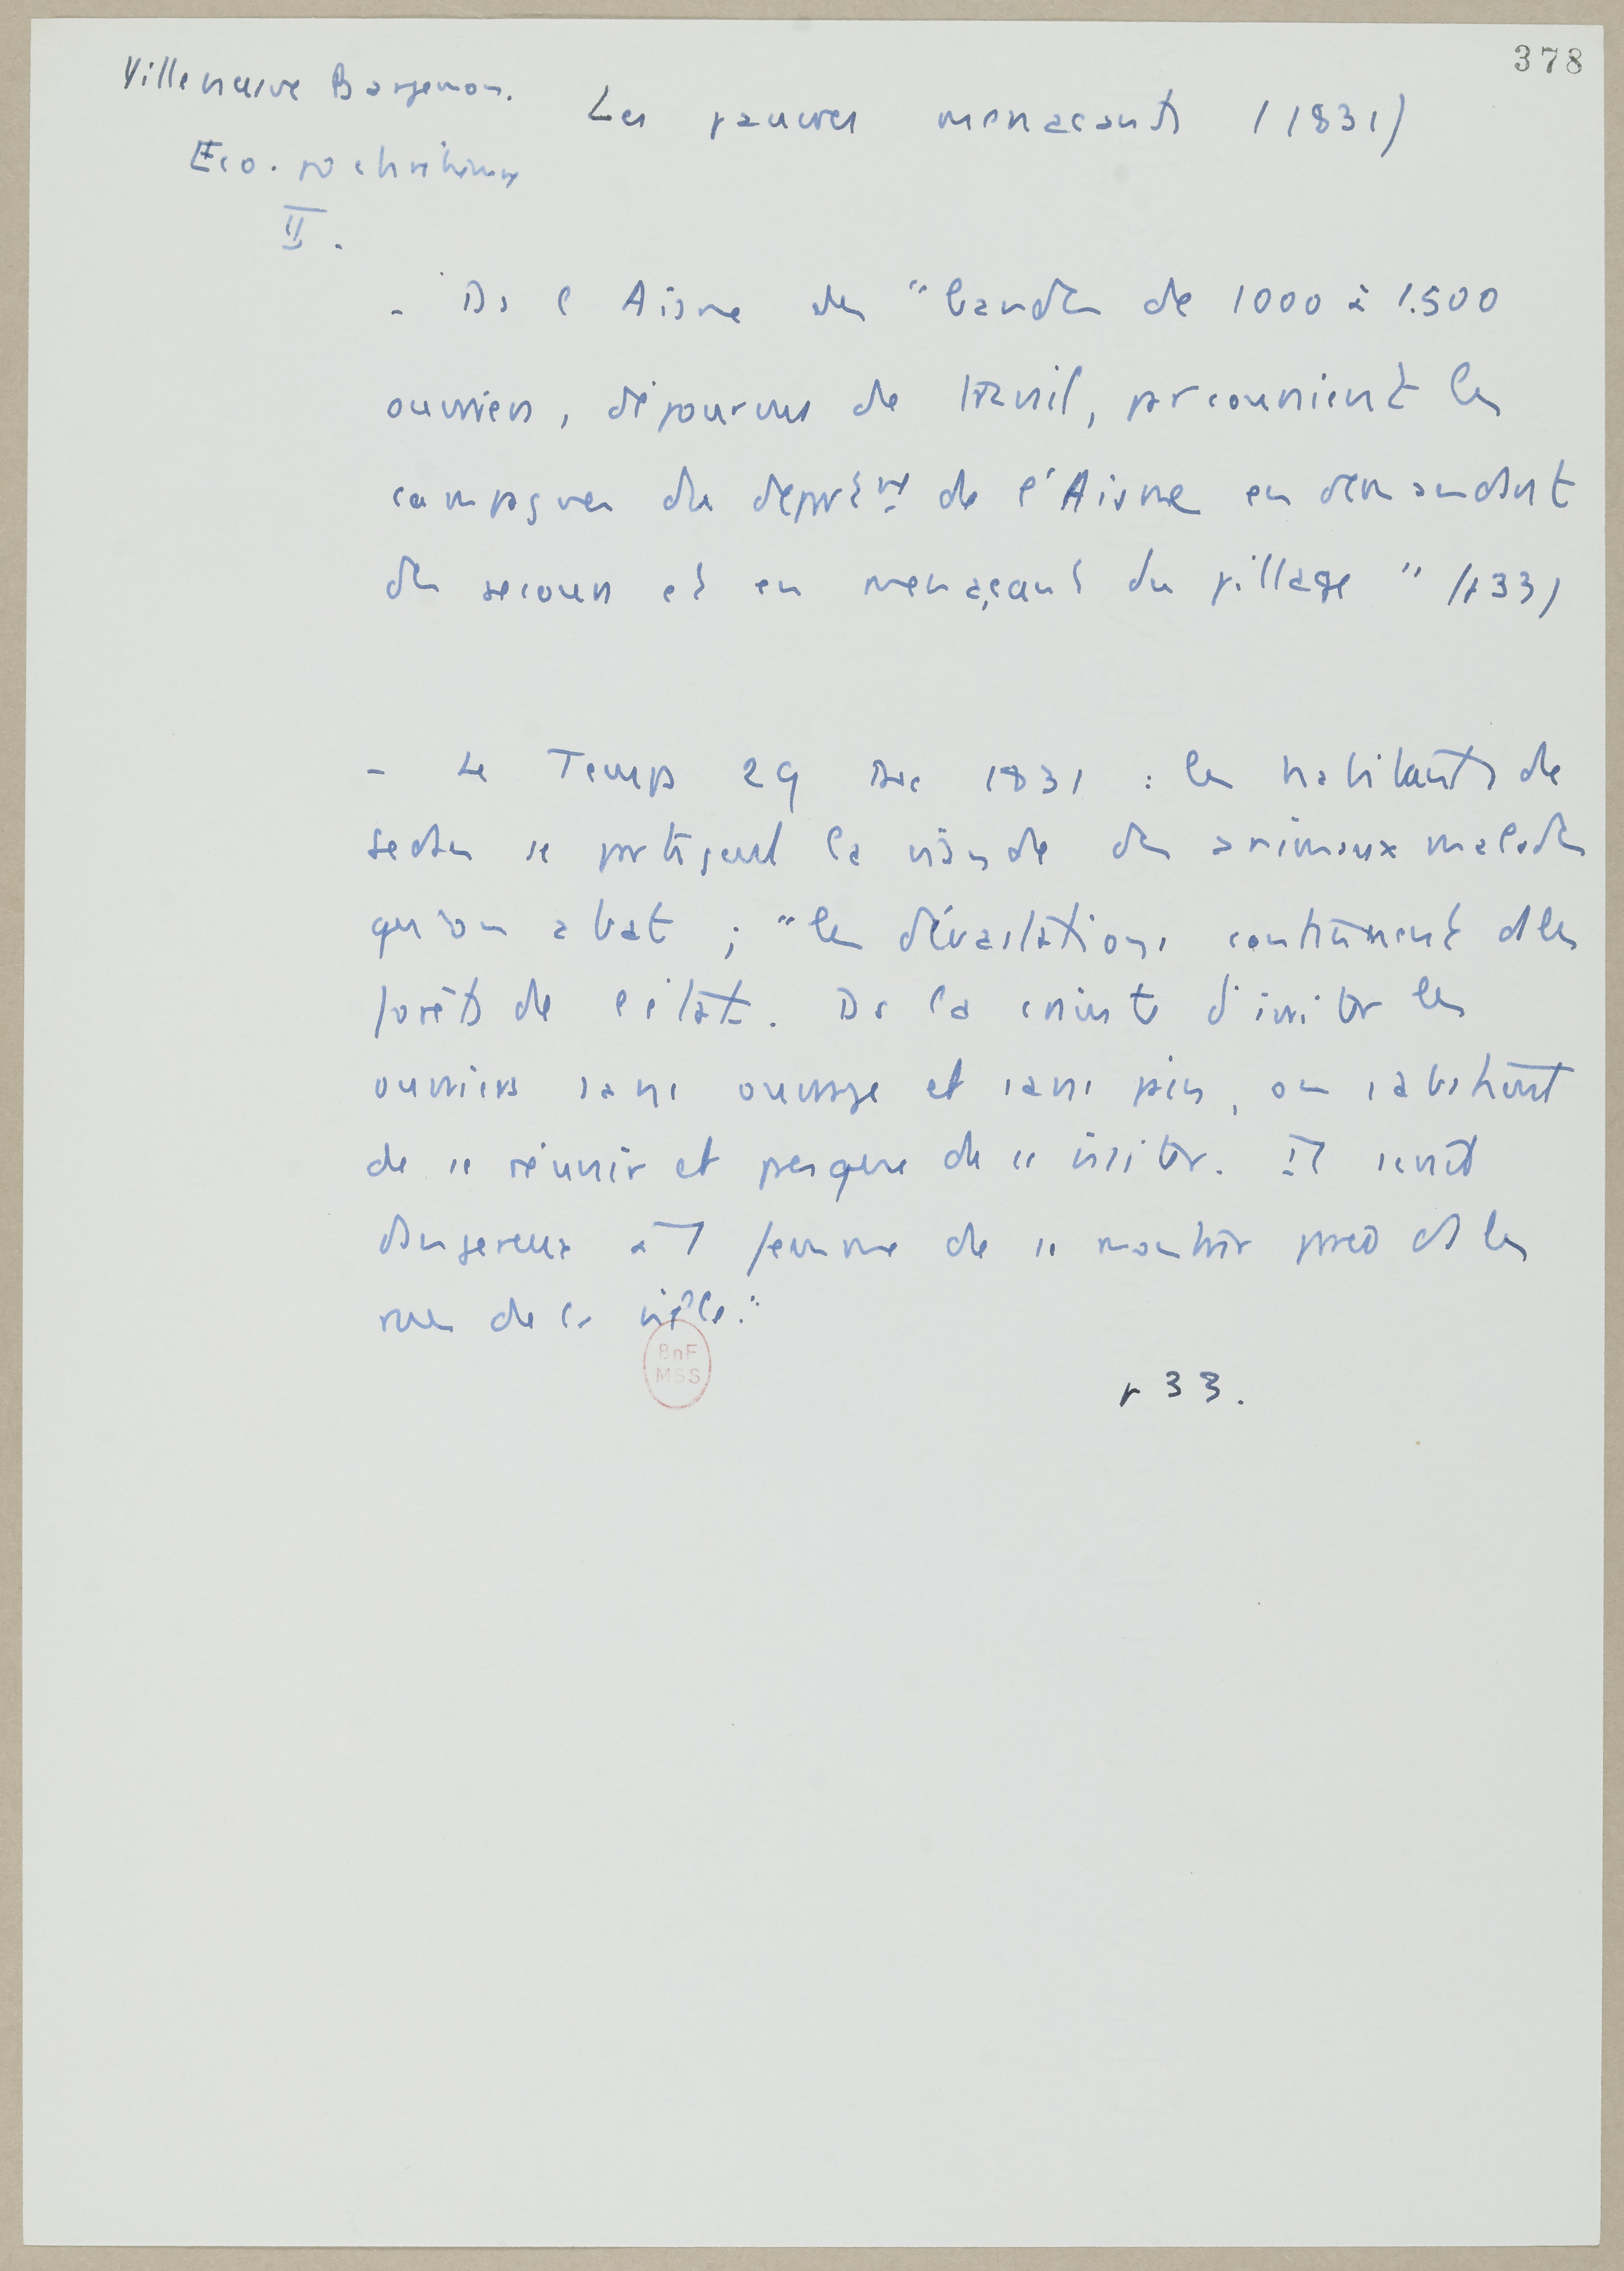 378
Villeneuve Bargemon.
Les pauvres menaçants (1831)
Eco. po chrétienne
II.
- Ds l'Aisne des "bandes de 1000 à 1.500
ouvriers, dépourvus de travail, parcouraient les
campagnes du départemt de l'Aisne en demandant
des secours et en menaçant du pillage" (p 33)
- Le Temps 29 Dec 1831 : les habitants de
Sedan se partagent la viande des animaux malades
qu'on abat ; "les dévastations continuent ds les
forêts de l'état. Ds la crainte d'irriter les
ouvriers sans ouvrage et sans pain, on s'abstient
de se réunir et presque de se visiter. Il serait
dangereux à 1 femme de se montrer parée ds les
rues de la ville."
BnF
MSS
p 33.